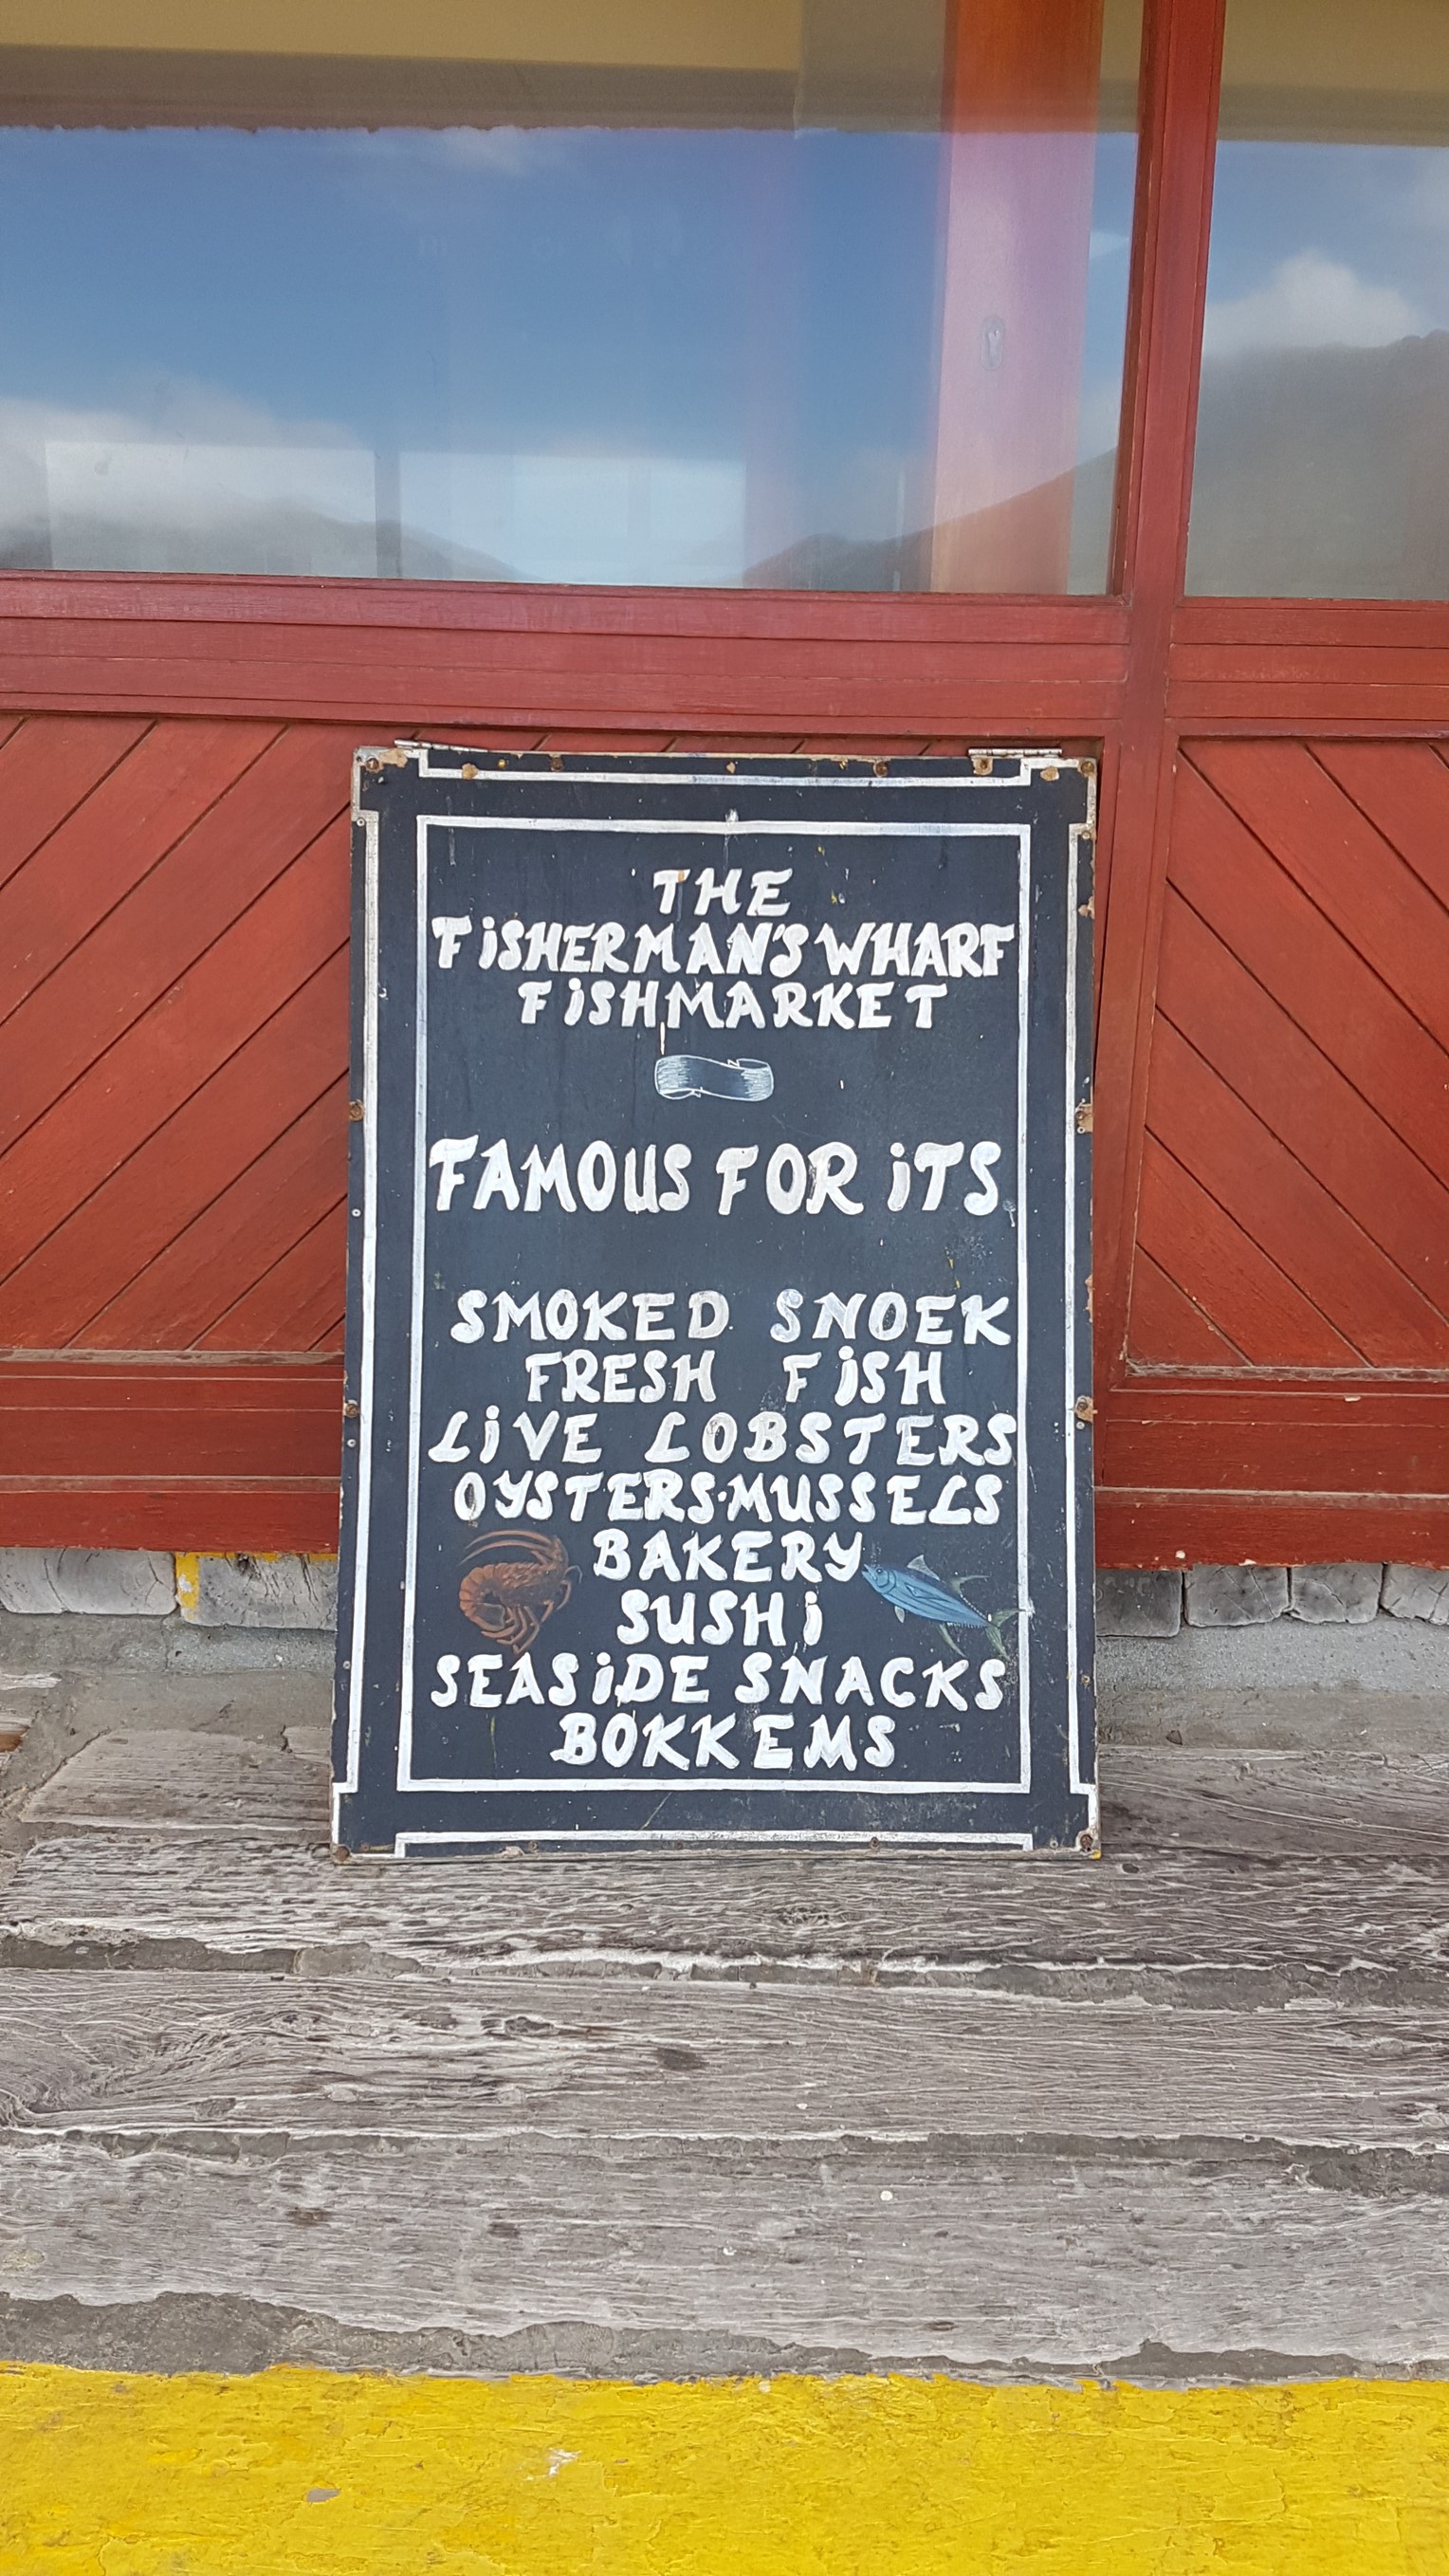 THE
FiSHERMAN'S WHARF
FiSHMARKET
FAMOUS FOR iTS
SMOKED SNOEK
FRESH FiSH
LiVE LOBSTERS
OYSTERS·MUSSELS
BAKERY
SUSHi
SEASiDE SNACKS
BOKKEMS